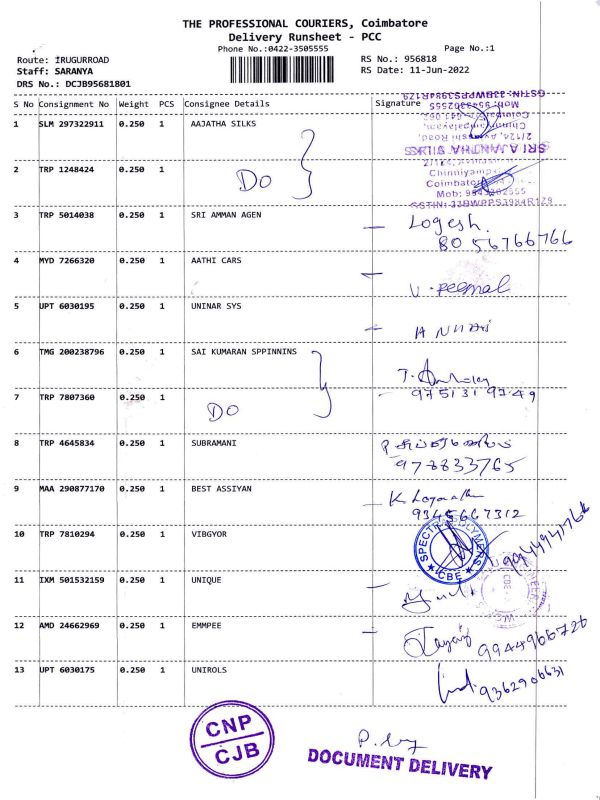 THE PROFESSIONAL COURIERS, Coimbatore
Delivery Runsheet - PCC
Phone No.:0422-3505555
Page No.:1
Route: IRUGURROAD
RS No.: 956818
Staff: SARANYA
RS Date: 11-Jun-2022
DRS No.: DCJB95681801
S No Consignment No Weight PCS Consignee Details Signature
GSTIN: 33BWPPS3984R1Z9
SRI AJANTHA SILKS
1 SLM 297322911 0.250 1 AAJATHA SILKS
2 TRP 1248424 0.250 1
DO
Mob: 9843302555
GSTIN: 33BWPPS3984R1Z9
3 TRP 5014038 0.250 1 SRI AMMAN AGEN
Logesh
8056766766
4 MYD 7266320 0.250 1 AATHI CARS
5 UPT 6030195 0.250 1 UNINAR SYS
6 TMG 200238796 0.250 1 SAI KUMARAN SPPINNINS
7 TRP 7807360 0.250 1
DO
9751319749
8 TRP 4645834 0.250 1 SUBRAMANI
978833765
9 MAA 290877170 0.250 1 BEST ASSIYAN
9345667312
10 TRP 7810294 0.250 1 VIBGYOR
SPECTRA POLYMERS
CBE
9944941766
11 IXM 501532159 0.250 1 UNIQUE
12 AMD 24662969 0.250 1 EMMPEE
9944966726
13 UPT 6030175 0.250 1 UNIROLS
9362906631
CNP
CJB
DOCUMENT DELIVERY